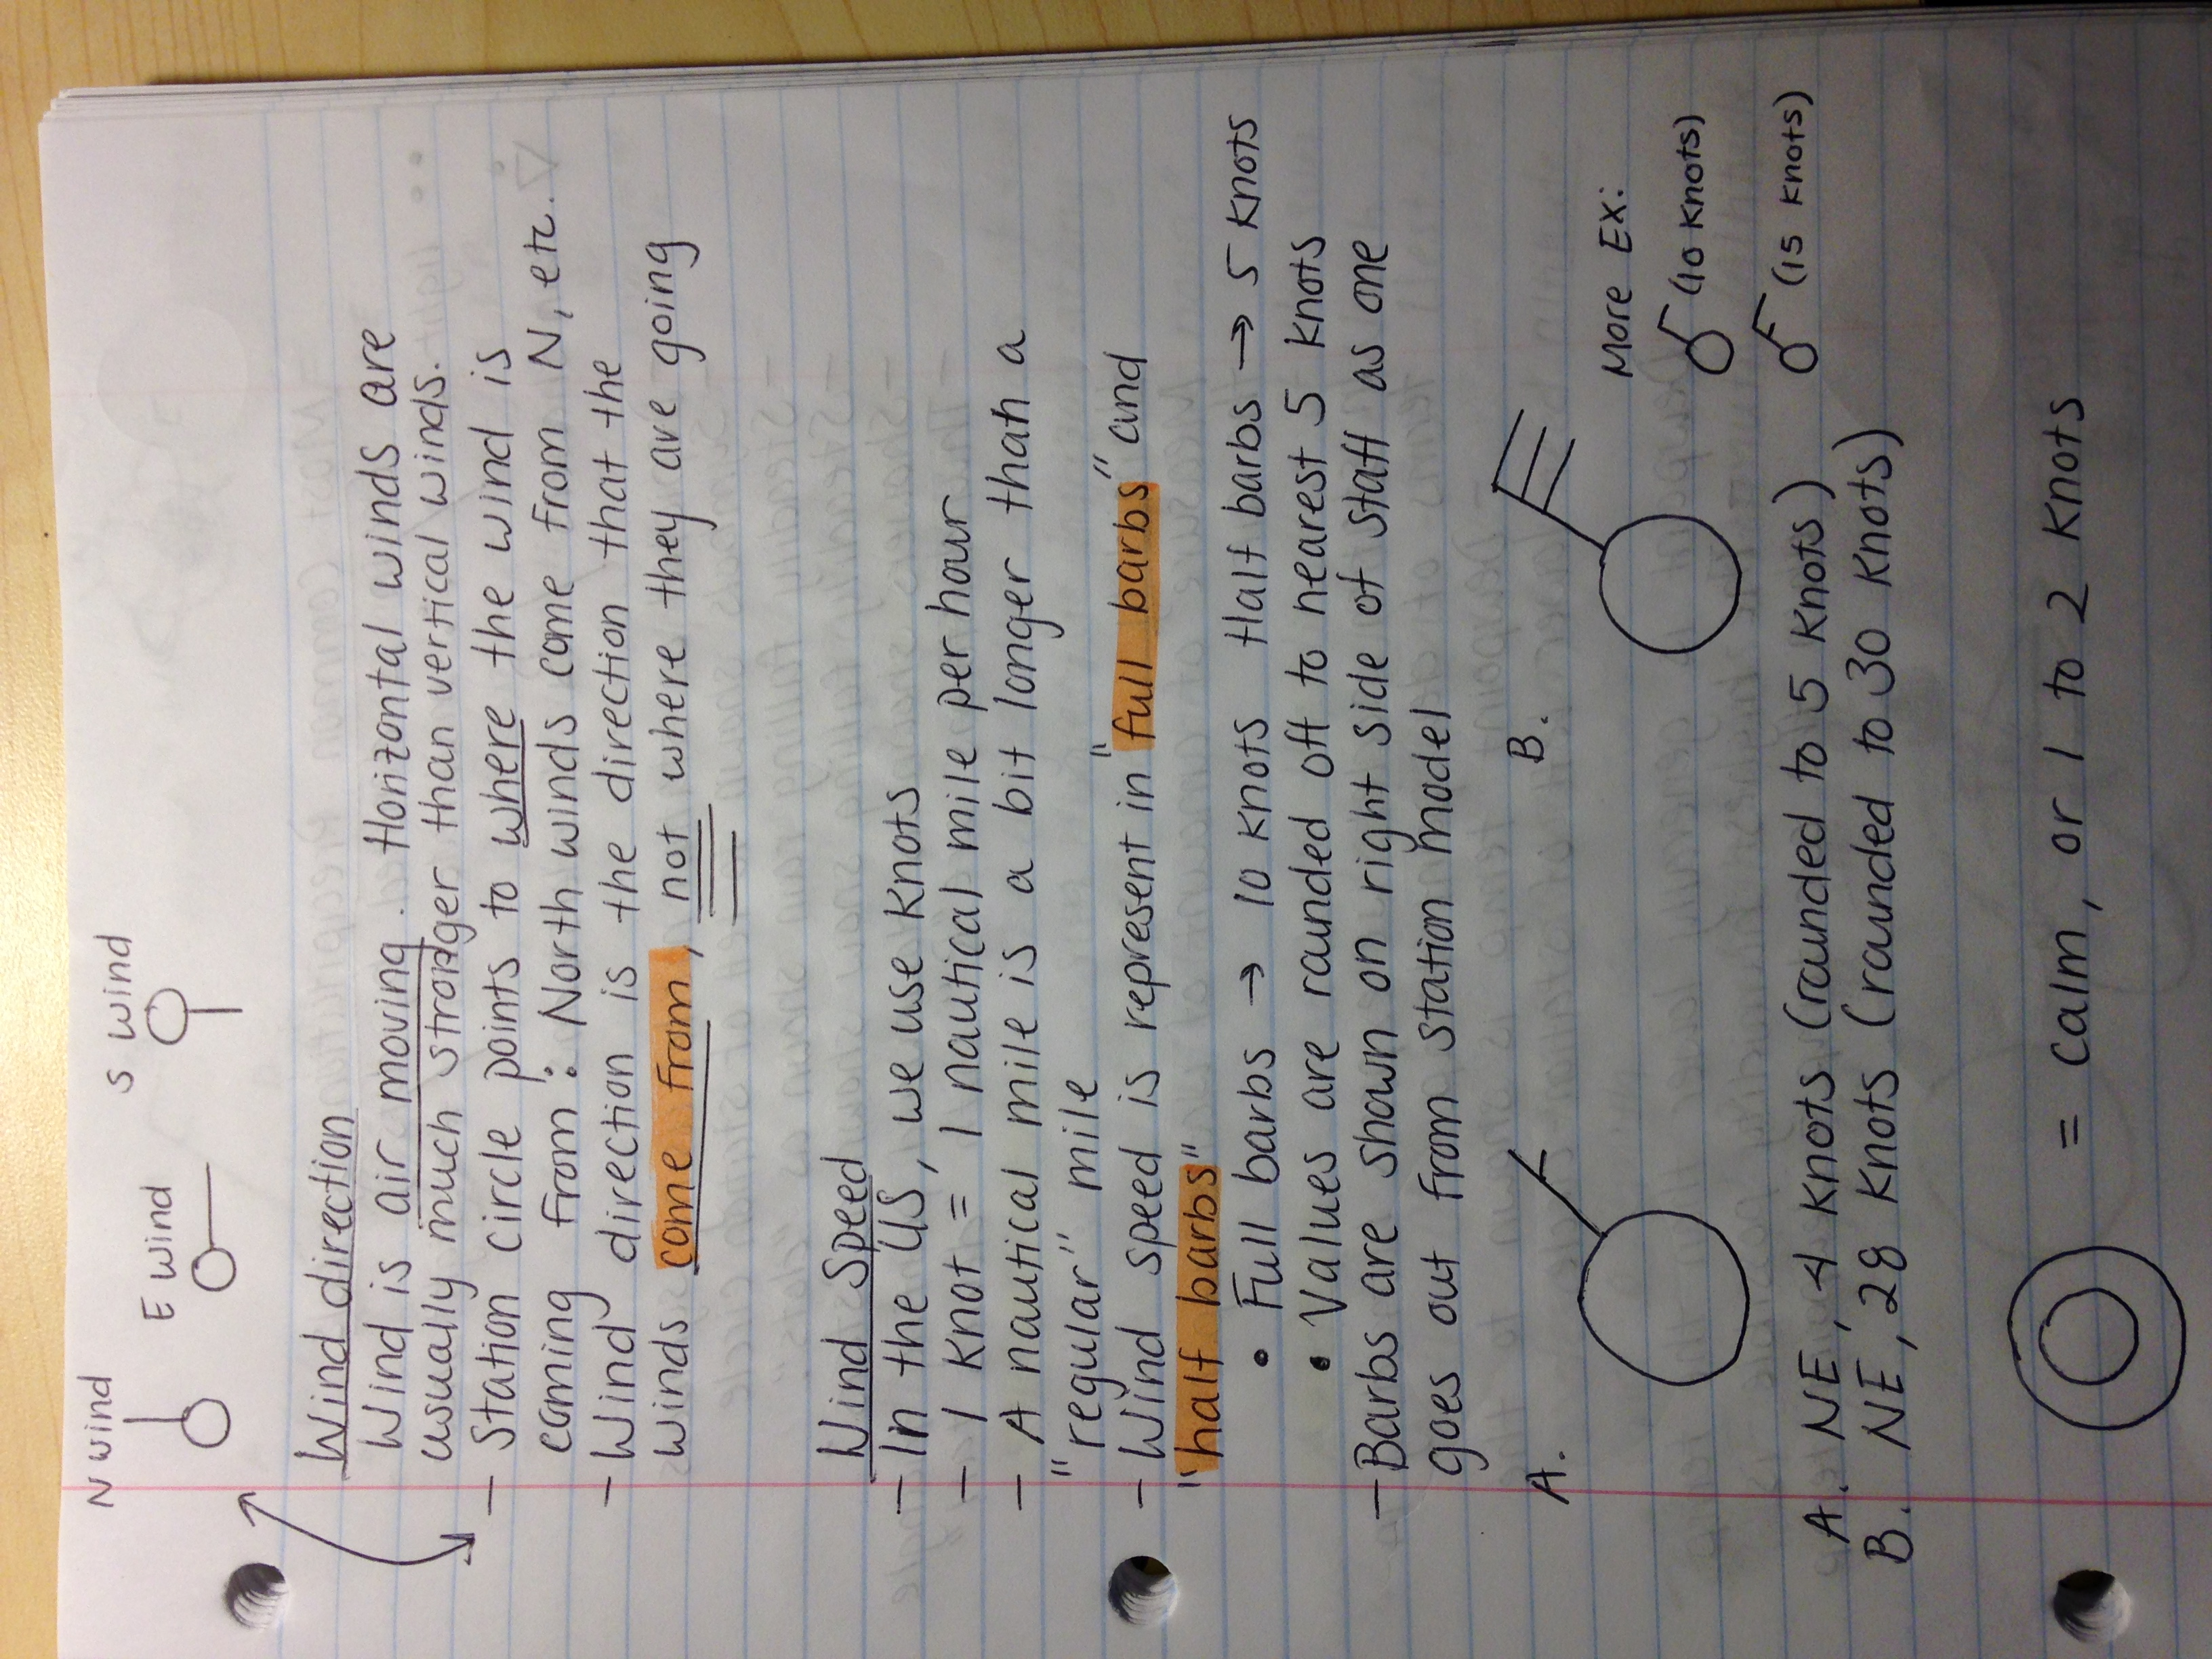 N wind
E wind
S wind
Wind direction
Wind is air moving. Horizontal winds are
usually much stronger than vertical winds.
- Station circle points to where the wind is
coming from: North winds come from N, etc.
- Wind direction is the direction that the
winds come from, not where they are going
Wind Speed
- In the US, we use knots
- 1 knot = 1 nautical mile per hour
- A nautical mile is a bit longer than a
"regular" mile
- Wind speed is represent in "full barbs" and
"half barbs"
• Full barbs → 10 knots Half barbs → 5 knots
• Values are rounded off to nearest 5 knots
- Barbs are shown on right side of staff as one
goes out from station model
A.
B.
More Ex:
(10 knots)
(15 knots)
A. NE, 4 knots (rounded to 5 knots)
B. NE, 28 knots (rounded to 30 knots)
= calm, or 1 to 2 knots